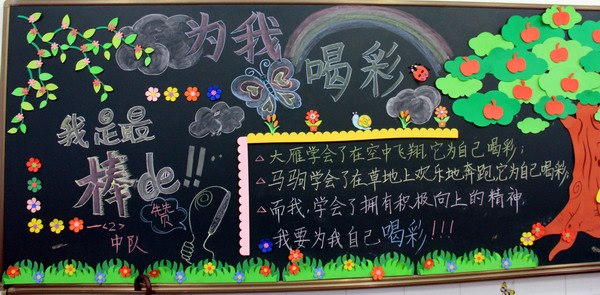 为我喝彩
我是最
棒de!!
赞
—<2>
中队
大雁学会了在空中飞翔,它为自己喝彩;
马驹学会了在草地上欢乐地奔跑,它为自己喝彩;
而我,学会了拥有积极向上的精神,
我要为我自己喝彩!!!